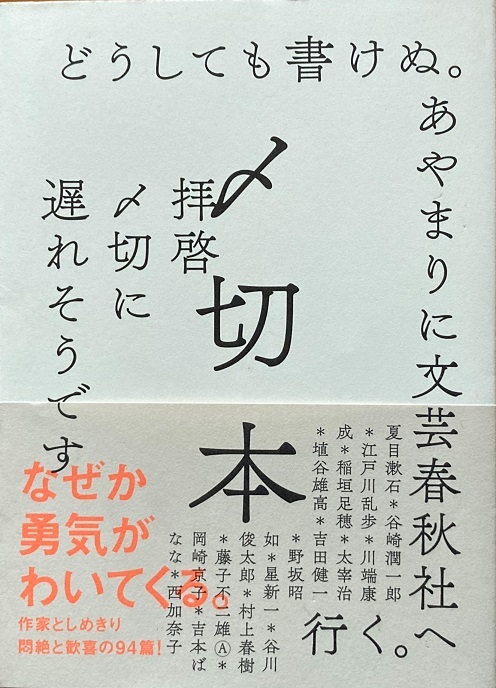 どうしても書けぬ。
あやまりに文芸春秋社へ
行く。
〆切本
拝啓
〆切に
遅れそうです
夏目漱石*谷崎潤一郎
*江戸川乱歩*川端康
成*稲垣足穂*太宰治
*埴谷雄高*吉田健一
*野坂昭
如*星新一*谷川
俊太郎*村上春樹
*藤子不二雄Ⓐ*
岡崎京子*吉本ば
なな*西加奈子
なぜか
勇気が
わいてくる。
作家としめきり
悶絶と歓喜の94篇!